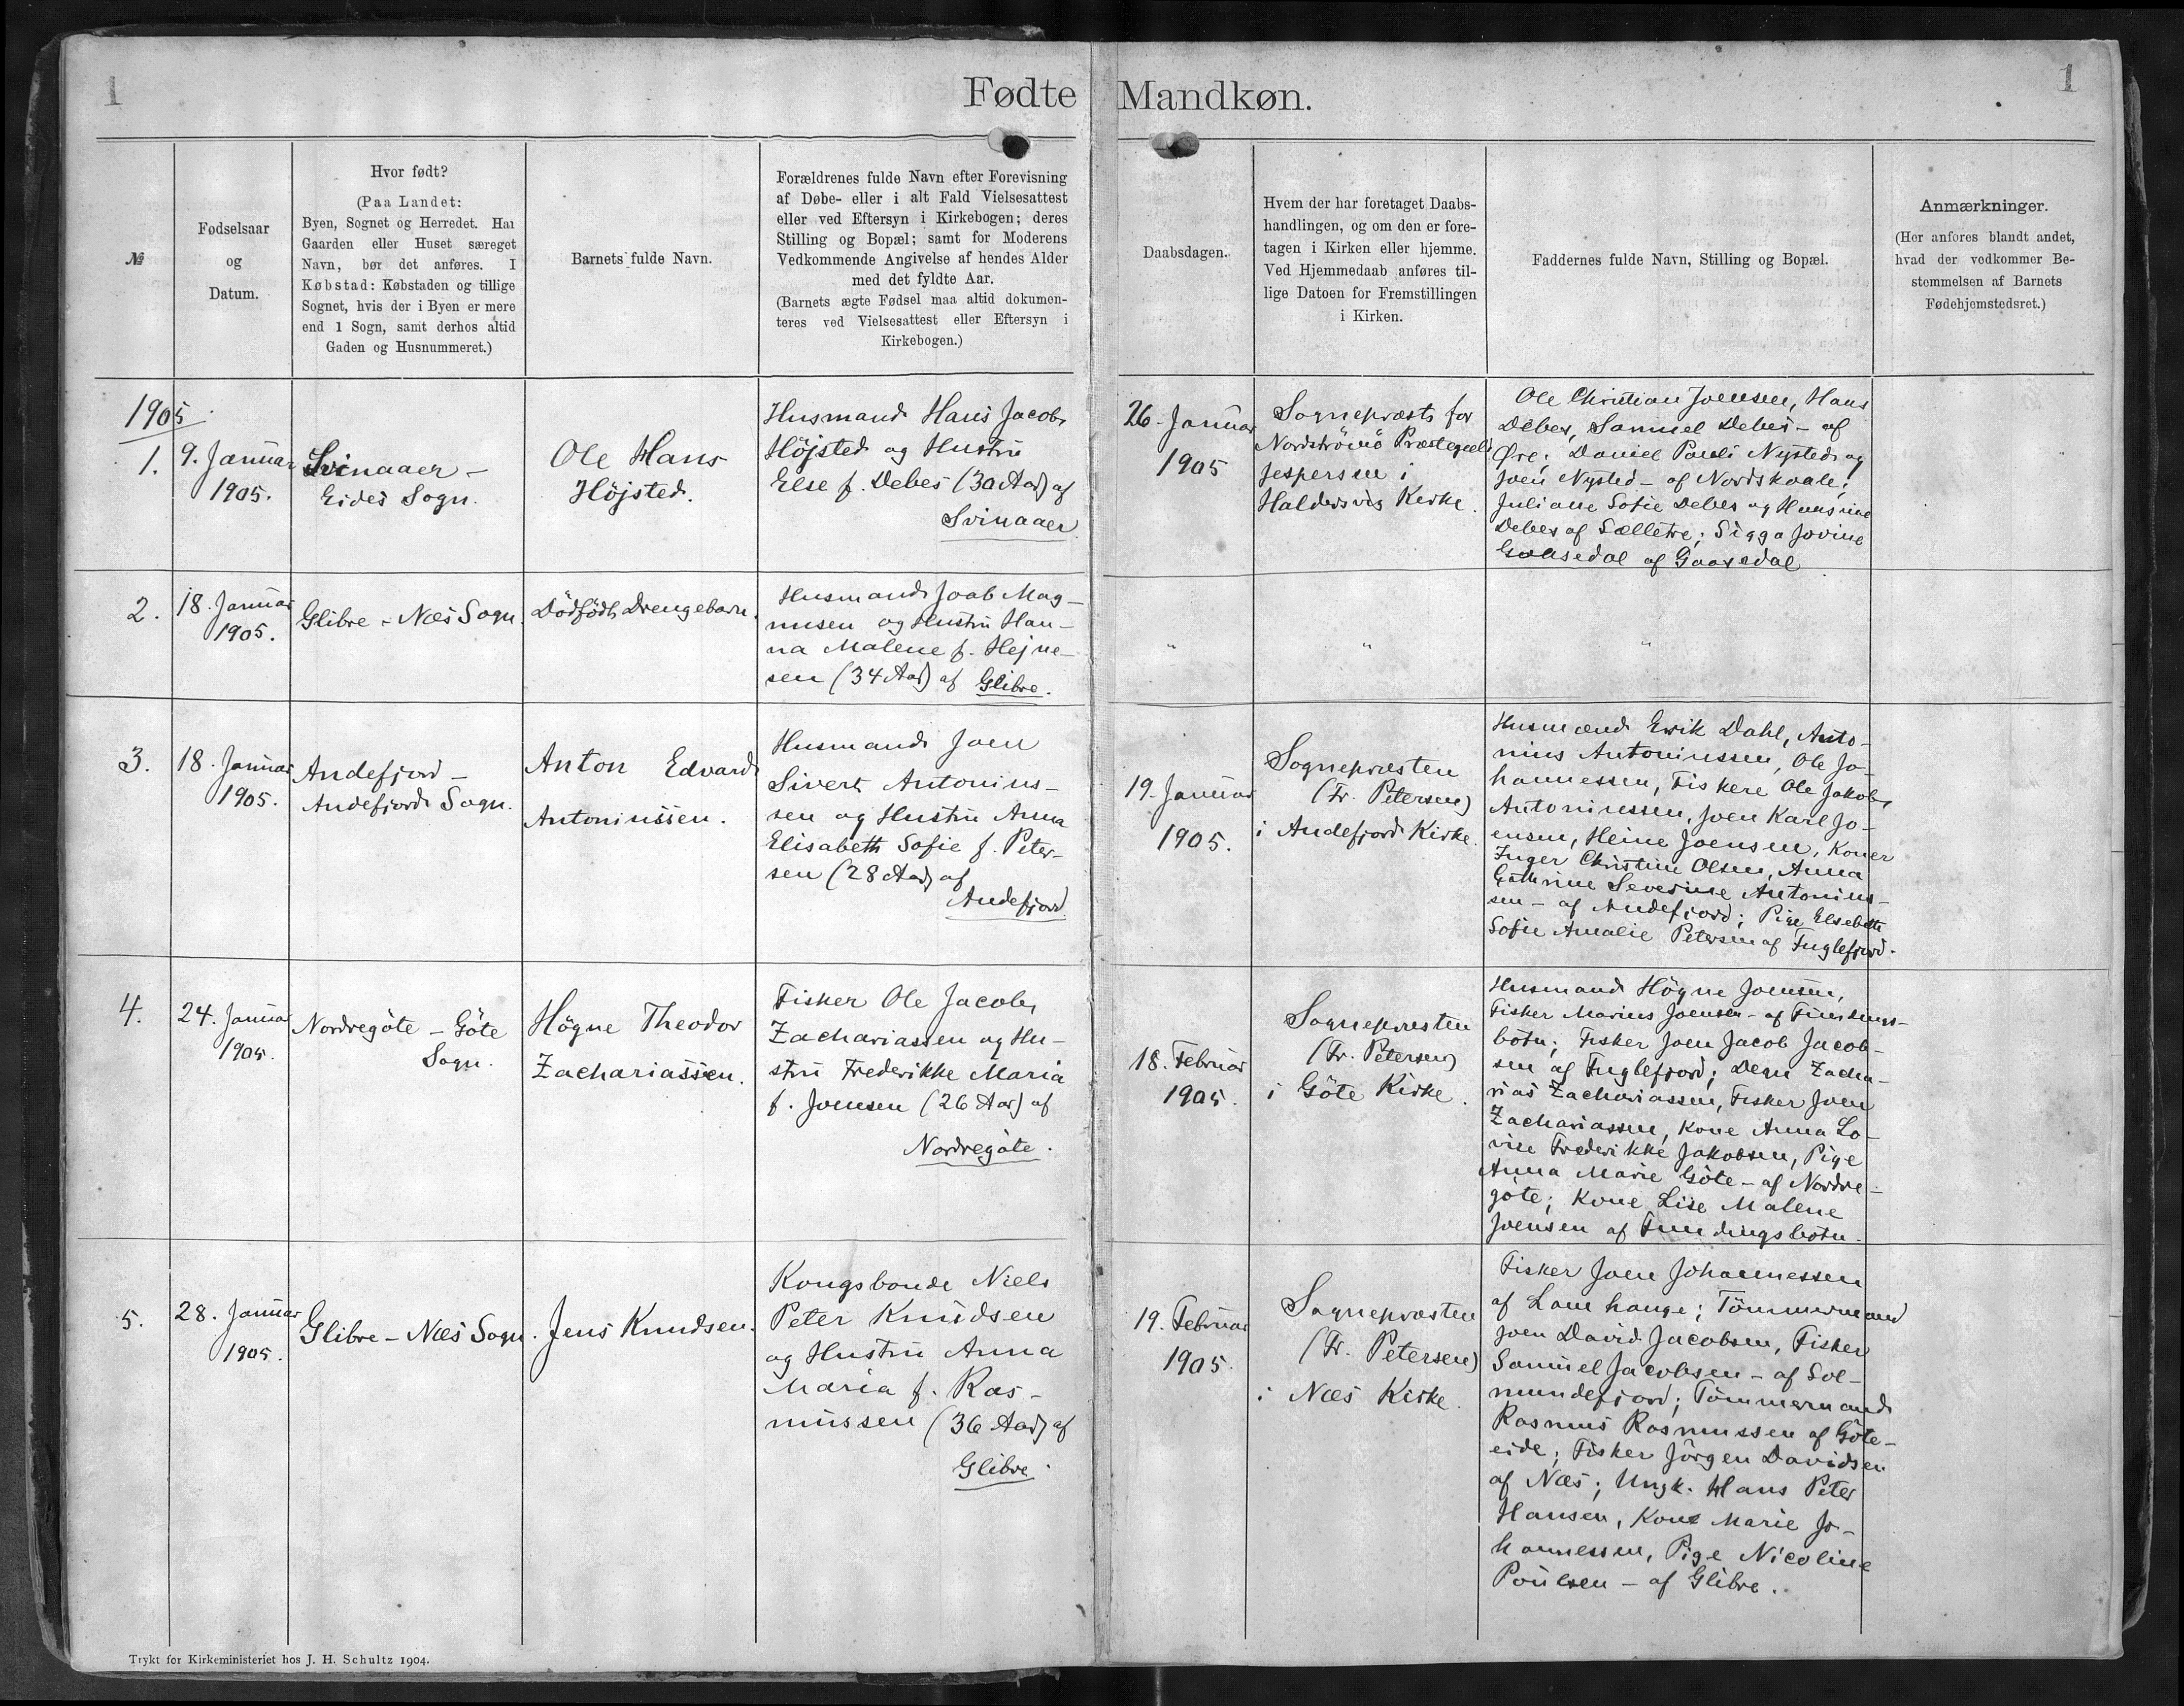 1
Fødte
№
Fødselsaar
og
Datum.
Hvor født?
(Paa Landet:
Byen, Sognet og Herredet. Har
Gaarden eller Huset særeget
Navn, bør det anføres. I
Købstad: Købstaden og tillige
Sognet, hvis der i Byen er mere
end 1 Sogn, samt derhos altid
Gaden og Husnummeret.)
Barnets fulde Navn.
Forældrenes fulde Navn efter Forevisning
af Døbe- eller i alt Fald Vielsesattest
eller ved Eftersyn i Kirkebogen; deres
Stilling og Bopæl; samt for Moderens
Vedkommende Angivelse af hendes Alder
med det fyldte Aar.
(Barnets ægte Fødsel maa altid dokumen-
teres ved Vielsesattest eller Eftersyn i
Kirkebogen.)
1905
1.
9. Januar
1905.
Svinaaer -
Eides Sogn.
Ole Hans
Höjsted.
Husmand Hans Jacob
Höjsted og Hustru
Else f. Debes (30 Aar) af
Svinaaer
2.
18. Januar
1905.
Glibre - Næs Sogn.
Dödfödt Drengebarn.
Husmand Joab Mag-
nusen og Hustru Han-
na Malene f. Hejne-
sen (34 Aar) af Glibre.
3.
18. Januar
1905.
Andefjord -
Andefjords Sogn.
Anton Edvard
Antoniussen.
Husmand Joen
Sivert Antonius-
sen og Hustru Anna
Elisabeth Sofie f. Peter-
sen (28 Aar) af
Andefjord
4.
24. Januar
1905.
Nordregöte - Göte
Sogn.
Högne Theodor
Zachariassen.
Fisker Ole Jacob
Zachariassen og Hu-
stru Frederikke Maria
f. Joensen (26 Aar) af
Nordregöte.
5.
28. Januar
1905.
Glibre - Næs Sogn.
Jens Knudsen.
Kongsbonde Niels
Peter Knudsen
og Hustru Anna
Maria f. Ras-
mussen (36 Aar) af
Glibre.
Trykt for Kirkeministeriet hos J. H. Schultz 1904.
Mandkøn.
1
Daabsdagen.
Hvem der har foretaget Daabs-
handlingen, og om den er fore-
tagen i Kirken eller hjemme.
Ved Hjemmedaab anføres til-
lige Datoen for Fremstillingen
i Kirken.
Faddernes fulde Navn, Stilling og Bopæl.
Anmærkninger.
(Her anføres blandt andet,
hvad der vedkommer Be-
stemmelsen af Barnets
Fødehjemstedsret.)
26. Januar
1905
Sognepræst for
Nordströmö Præstegæld
Jespersen i
Haldersvig Kirke.
Ole Christian Joensen, Hans
Debes, Samuel Debes - af
Öre; Daniel Pauli Nysted og
Joen Nysted - af Nordskaale;
Juliane Sofie Debes og Hansine
Debes af Sælletre; Sigga Jovine
Gaasedal af Gaasedal
"
"
"
19. Januar
1905.
Sognepræsten
(Fr. Petersen)
i Andefjord Kirke.
Husmænd Erik Dahl, Anto-
nius Antoniussen, Ole Jo-
hannessen, Fiskere Ole Jakob
Antoniussen, Joen Karl Jo-
ensen, Heine Joensen, Koner
Inger Christine Olsen, Anna
Cathrine Severine Antonius-
sen - af Andefjord; Pige Elsebeth
Sofie Amalie Petersen af Fuglefjord.
18. Februar
1905.
Sognepræsten
(Fr. Petersen)
i Göte Kirke.
Husmand Högne Joensen,
Fisker Marius Joensen - af Fundings-
botn; Fisker Joen Jacob Jacob-
sen af Fuglefjord; Degn Zacha-
rias Zachariassen, Fisker Joen
Zachariassen, Kone Anna Lo-
vise Frederikke Jakobsen, Pige
Anna Marie Göte - af Nordre-
göte; Kone Lise Malene
Joensen af Fundingsbotn.
19. Februar
1905.
Sognepræsten
(Fr. Petersen)
i Næs Kirke.
Fisker Joen Johannessen
af Lamhauge; Tömmermand
Joen David Jacobsen, Fisker
Samuel Jacobsen - af Sol-
mundefjord; Tömmermand
Rasmus Rasmussen af Göte-
eide; Fisker Jörgen Davidsen
af Næs; Ungk. Hans Peter
Hansen, Kone Marie Jo-
hannessen, Pige Nicoline
Poulsen - af Glibre.